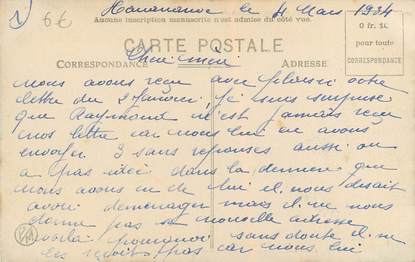 6€
le 4 Mars 1934
Aucune inscription manuscrite n'est admise du côté vue.
0 fr.
pour toute
CORRESPONDANCE
CARTE POSTALE
CORRESPONDANCE
ADRESSE
nous avons reçu avec plaisir votre
lettre du 2 Janvier, je suis surprise
que Raymond n'est jamais reçu
nos lettre car nous lui en avons
envoyer 3 sans reponses aussi on
a pas idée dans la derniere que
nous avons eu de lui il nous disait
avoir demenager mais il ne nous
donne pas sa nouvelle adresse
voila pourquoi sans doute il ne
les reçoit pas car nous lui